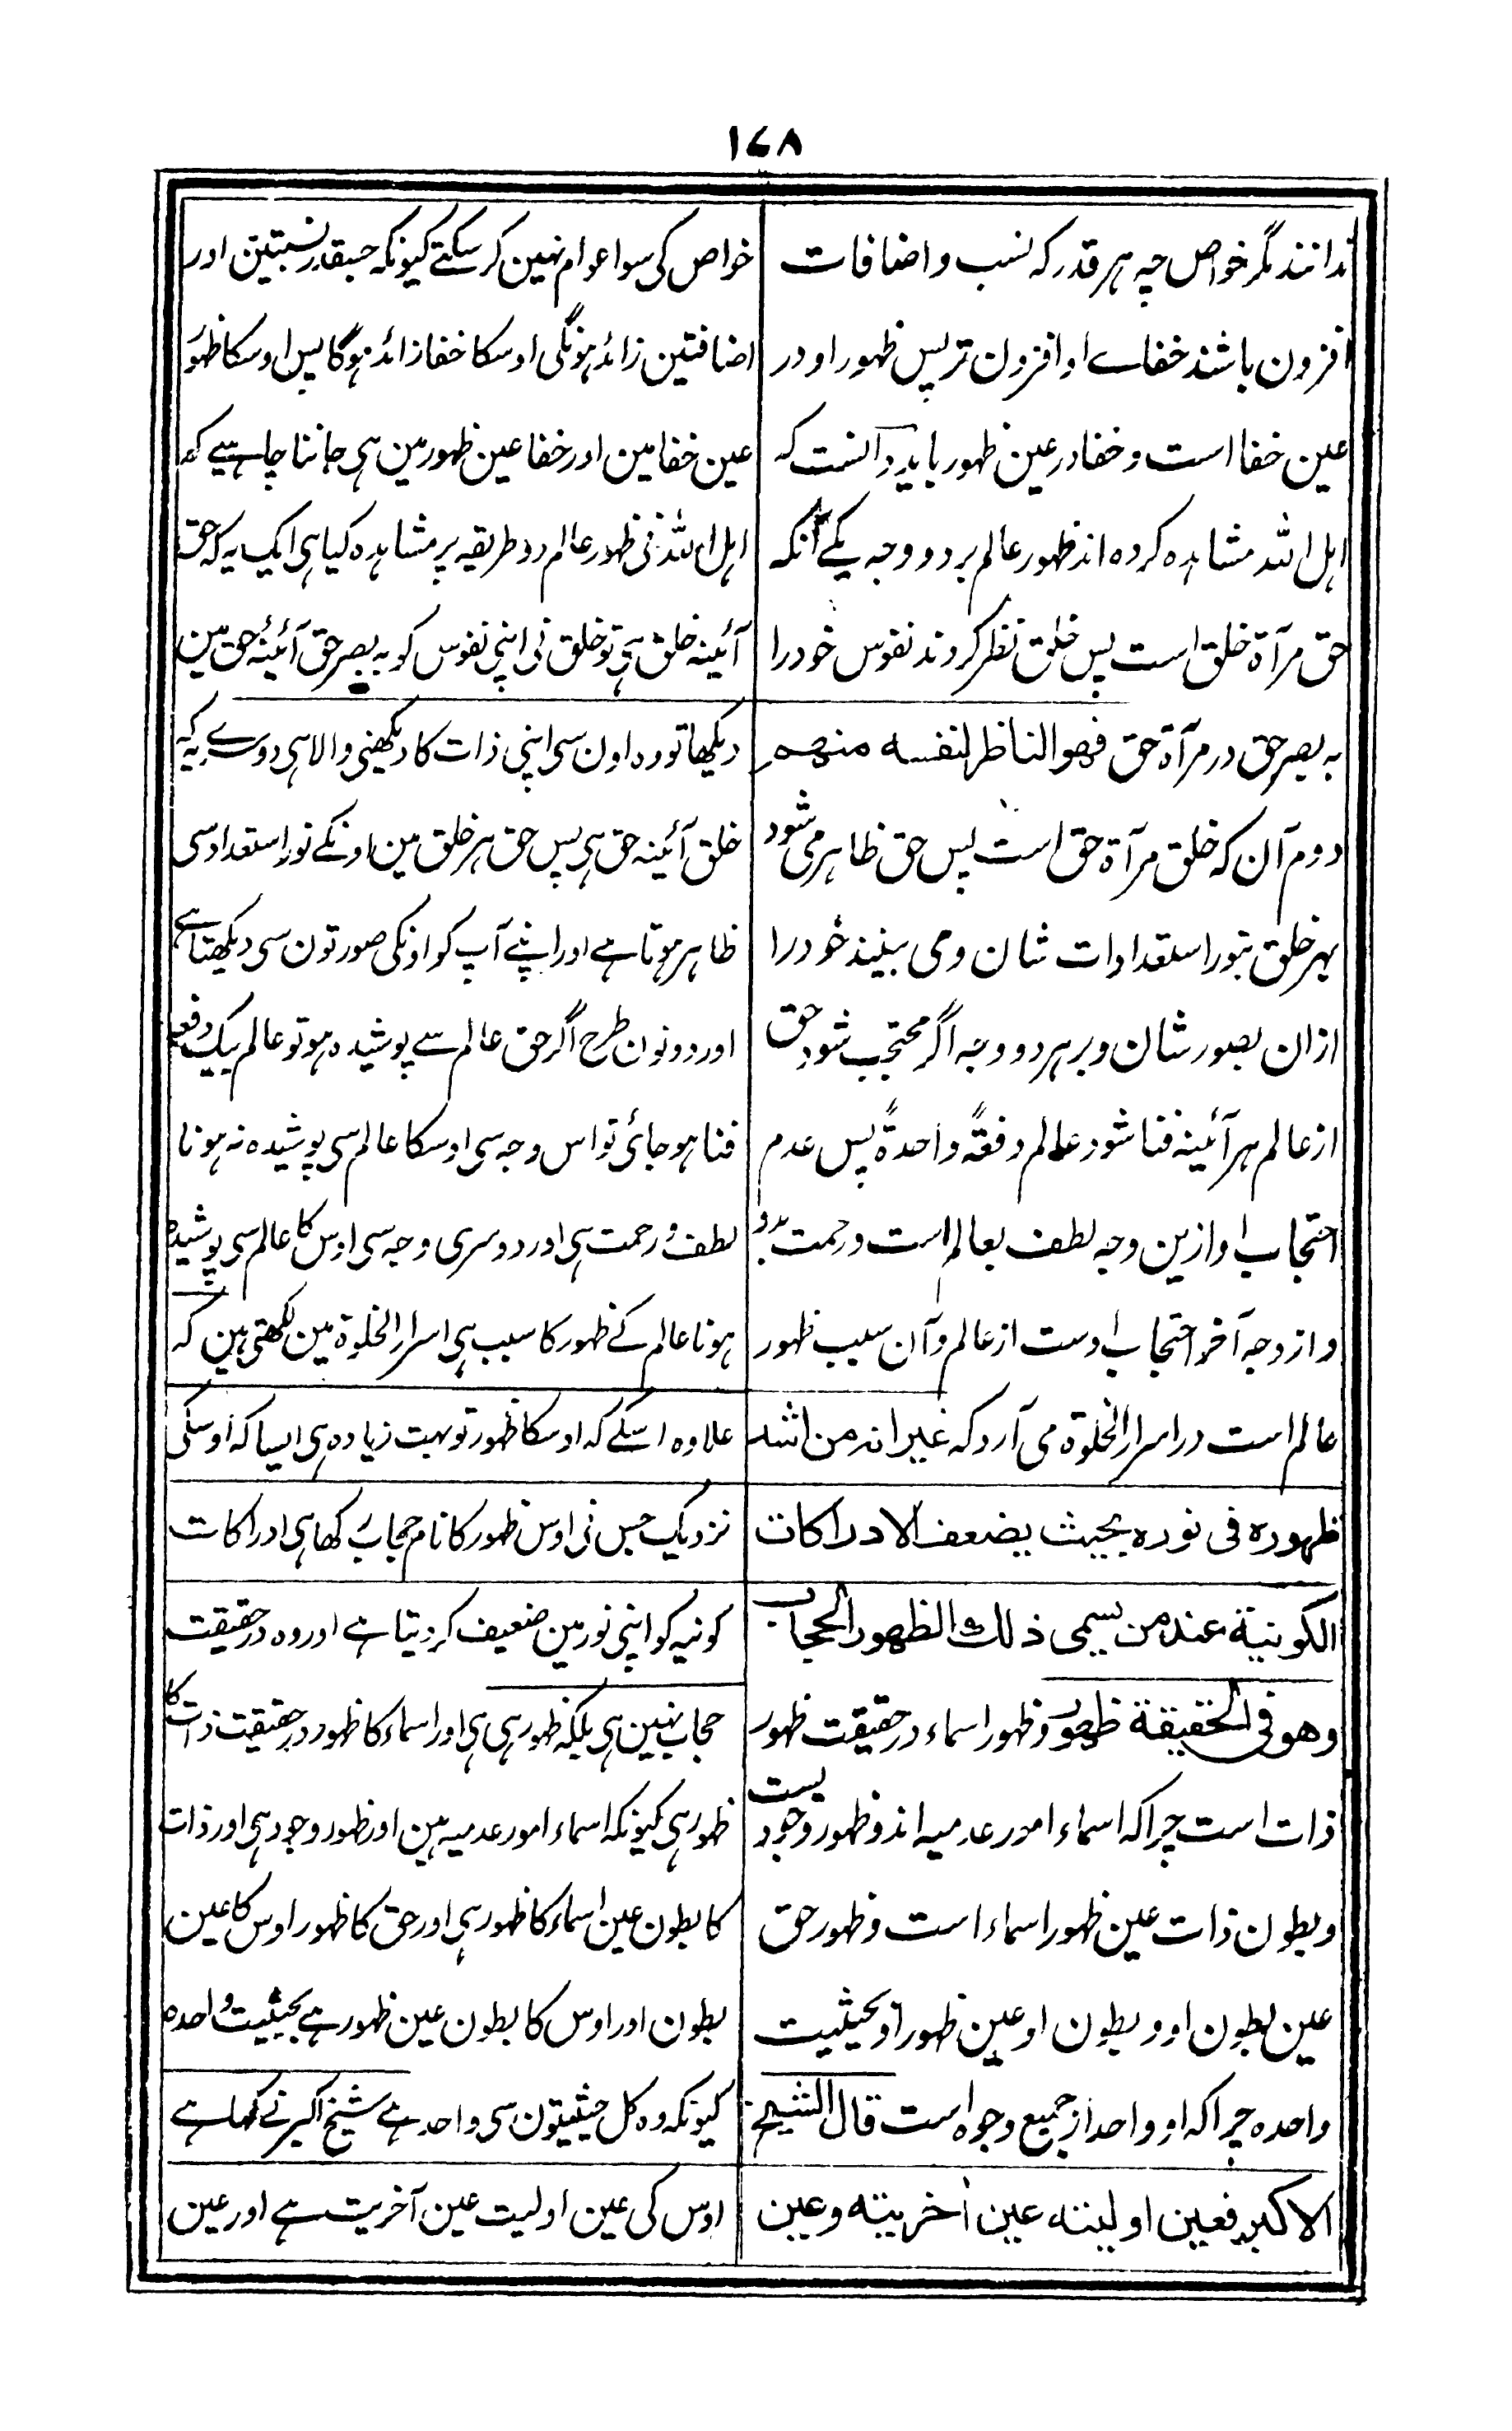 ۱۷۸
ندانند مگر خواص چہ ہر قدر کہ نسب و اضافات
افزون باشند خفاے او افزون تر پس ظہور او در
عین خفا است و خفا در عین ظہور باید دانست کہ
اہل اللہ مشاہدہ کردہ اند ظہور عالم بر دو وجہ یکے آنکہ
حق مرآۃ خلق است پس خلق نظر کردند نفوس خود را
بہ بصر حق در مرآۃ حق فھو الناظر لنفسہ منھم
دوم آن کہ خلق مرآۃ حق است پس حق ظاہر می شود
بہر خلق بنور استعدادات شان و می بیند خود را
ازان بصور شان و بر ہر دو وجہ اگر محتجب شود حق
از عالم ہر آئینہ فنا شود عالم دفعۃً واحدۃً پس عدم
احتجاب او ازین وجہ لطف بعالم است و رحمت بدو
و از وجہ آخر احتجاب اوست از عالم و آن سبب ظہور
عالم است در اسرار الخلوۃ می آرد کہ غیر انہ من اشد
ظہورہ فی نورہ بحیث یضعف الادراکات
الکونیۃ عند من یسمی ذلک الظھور الحجاب
وھو فی الحقیقۃ ظھور و ظہور اسماء در حقیقت ظہور
ذات است چرا کہ اسماء امور عدمیہ اند و ظہور وجودیست
و بطون ذات عین ظہور اسماء است و ظہور حق
عین بطون او و بطون او عین ظہور او بحیثیت
واحدہ چرا کہ او واحد از جمیع وجوہ است قال الشیخ
الاکبر فعین اولیتہ عین آخریتہ وعین
خواص کی سوا عوام نہین کر سکتے کیونکہ جسقدر نسبتین اور
اضافتین زائد ہونگی اوسکا خفا زائد ہوگا پس اوسکا ظہور
عین خفا مین اور خفا عین ظہور مین ہی جاننا چاہیے کہ
اہل اللہ نی ظہور عالم دو طریقہ پر مشاہدہ کیا ہی ایک یہ کہ حق
آئینہ خلق ہی تو خلق نی اپنی نفوس کو بہ بصر حق آئینۂ حق مین
دیکھا تو وہ اون سی اپنی ذات کا دیکھنی والا ہی دوسرے یہ کہ
خلق آئینہ حق ہی پس حق ہر خلق مین اونکے نور استعداد سی
ظاہر ہوتا ہے اور اپنے آپ کو اونکی صورتون سی دیکھتا ہے
اور دونون طرح اگر حق عالم سے پوشیدہ ہو تو عالم یک دفعہ
فنا ہو جائی تو اس وجہ سی اوسکا عالم سی پوشیدہ نہ ہونا
لطف و رحمت ہی اور دوسری وجہ سی اوس کا عالم سی پوشیدہ
ہونا عالم کے ظہور کا سبب ہی اسرار الخلوۃ مین لکھتی ہین کہ
علاوہ اسکے کہ اوسکا ظہور تو بہت زیادہ ہی ایسا کہ اوسکی
نزدیک جس نی اوس ظہور کا نام حجاب رکھا ہی ادراکات
کونیہ کو اپنی نور مین ضعیف کر دیتا ہے اور وہ در حقیقت
حجاب نہین ہی بلکہ ظہور ہی ہی اور اسماء کا ظہور در حقیقت ذات کا
ظہور ہی کیونکہ اسماء امور عدمیہ ہین اور ظہور وجود ہی اور ذات
کا بطون عین اسماء کا ظہور ہی اور حق کا ظہور اوس کا عین
بطون اور اوس کا بطون عین ظہور ہے بحیثیت واحدہ
کیونکہ وہ کل حیثیتون سی واحد ہے شیخ اکبر نے کہا ہے
اوس کی عین اولیت عین آخریت ہے اور عین